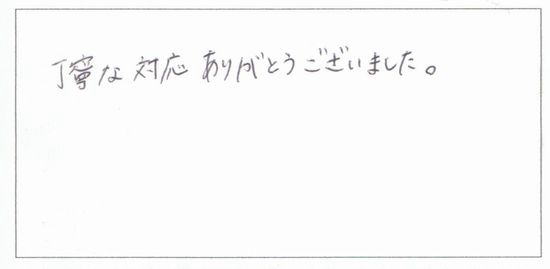 丁寧な対応ありがとうございました。